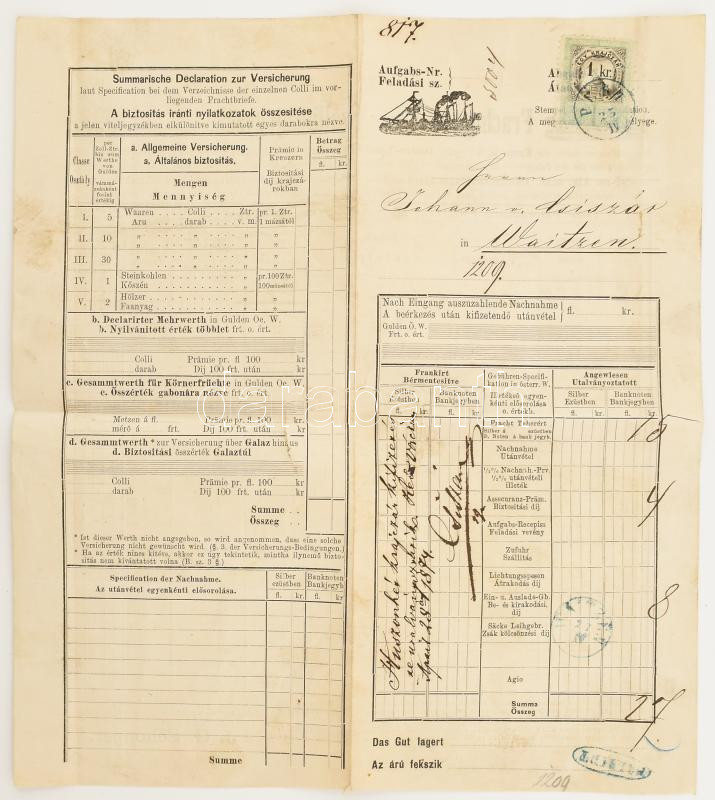 Summarische Declaration zur Versicherung
laut Specification bei dem Verzeichnisse der einzelnen Colli im vor-
liegenden Frachtbriefe.
A biztositás iránti nyilatkozatok összesitése
a jelen viteljegyzékben elkülönitve kimutatott egyes darabokra nézve.
Classe
Osztály
per
Zoll-Ztr.
bis zum
Werthe
von
Gulden
a. Allgemeine Versicherung.
a. Általános biztositás.
Mengen
Mennyiség
Prämie in
Kreuzern
Biztositási
dij krajczá-
rokban
Betrag
Összeg
fl. kr.
I. 5 Waaren . . . . Colli . . . Ztr. pr. 1. Ztr.
Aru . . . . darab . . v. m. 1 mázsától
II. 10 " " "
" " "
III. 30 " " "
" " "
IV. 1 Steinkohlen . . . . . . . " pr. 100 Ztr.
Kőszén . . . . . . . " 100 mázsától
V. 2 Hölzer . . . . . . . "
Faanyag . . . . . . . "
b. Declarirter Mehrwerth in Gulden Oe. W.
b. Nyilvánitott érték többlet frt. o. ért.
Colli Prämie pr. fl 100 kr
darab Dij 100 frt. után kr
c. Gesammtwerth für Körnerfrüchte in Gulden Oe. W.
c. Összérték gabonára nézve frt. o. ért.
Metzen á fl. Prämie pr. fl 100 kr
mérő á frt. Dij 100 frt. után kr
d. Gesammtwerth * zur Versicherung über Galaz hinaus
d. Biztositási összérték Galaztúl
Colli Prämie pr. fl 100 kr
darab Dij 100 frt. után kr
Summe . .
Összeg .
* Ist dieser Werth nicht angegeben, so wird angenommen, dass eine solche
Versicherung nicht gewünscht wird. (§. 3. der Versicherungs-Bedingungen.)
* Ha az érték nincs kitéve, akkor ez úgy tekintetik, mintha ilynemű bizto-
sitás nem kivántatott volna (B. sz. 3 §.)
Specification der Nachnahme.
Az utánvétel egyenkénti elősorolása.
Silber
ezüstben
Banknoten
Bankjegyb
fl. kr. fl. kr
Summe
817.
Aufgabs-Nr.
Feladási sz.
1 kr.
Herrn
Johann v. Csiszár
in Waitzen.
1209.
Nach Eingang auszuzahlende Nachnahme
A beérkezés után kifizetendő utánvétel
fl. kr.
Gulden Ö. W.
Frt. o. ért.
Frankirt
Bérmentesitve
Gebühren-Specifi-
kation in österr. W.
Angewiesen
Utalványoztatott
Silber
Ezüstben
Banknoten
Bankjegyben
Illetékek egyen-
kénti elősorolása
o. értékb.
Silber
Ezüstben
Banknoten
Bankjegyben
fl. kr. fl. kr. fl. kr. fl. kr.
Fracht Teherért 15
Nachnahme
Utánvétel
½% Nachnah.-Prv.
½% utánvételi
illeték
Assecuranz-Präm. 4
Biztositási dij
Aufgabs-Recepiss
Feladási vevény
Zufuhr
Szállitás
Lichtungsspesen
Átrakodás dij
Ein- u. Auslade-Gb. 8
Be- és kirakodási,
dij
Säcke Leihgebr.
Zsák kölcsönzési dij
Agio
Summa 27
Összeg
Huszonhét krajczár kifizetés
April 28án 1874.
Das Gut lagert
Az árú fekszik
1209
darabanth